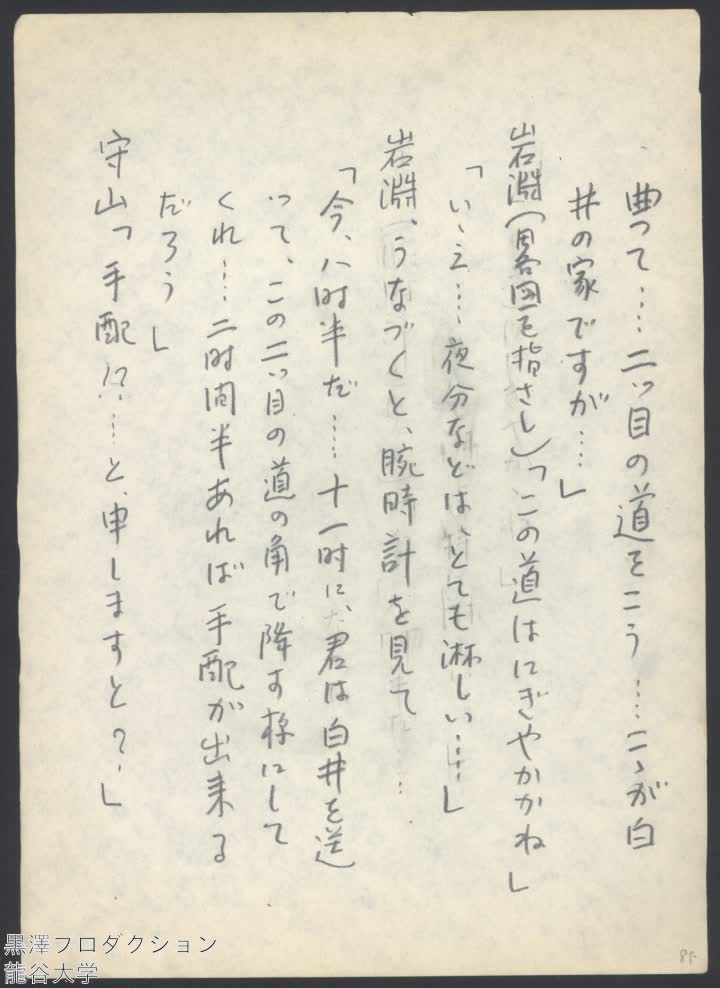 曲って……二ッ目の道をこう……こゝが白
井の家ですが……」
岩淵(略図を指さし)「この道はにぎやかかね」
「いゝえ……夜分などは、とても淋しい……」
岩淵、うなづくと、腕時計を見て
「今、八時半だ……十一時に、君は白井を送
って、この二ッ目の道の角で降す様にして
くれ……二時間半あれば手配が出来る
だろう」
守山「手配!?……と、申しますと?・」
黒澤プロダクション
龍谷大学